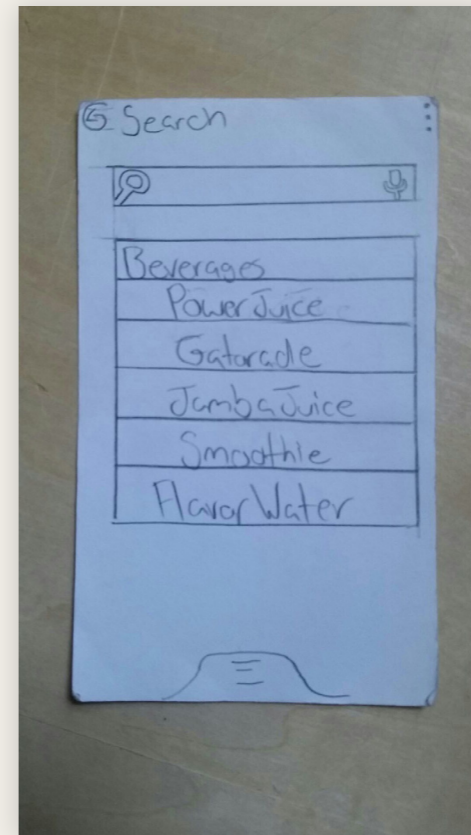 Search
Beverages
Power Juice
Gatorade
Jamba Juice
Smoothie
Flavor Water